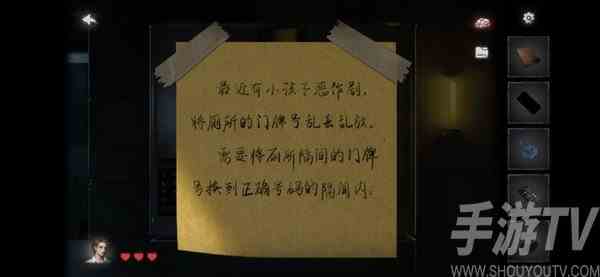 最近有小孩子恶作剧,
将厕所的门牌号乱丢乱放。
需要将厕所隔间的门牌
号换到正确号码的隔间内。
手游TV
WWW.SHOUYOUTV.COM